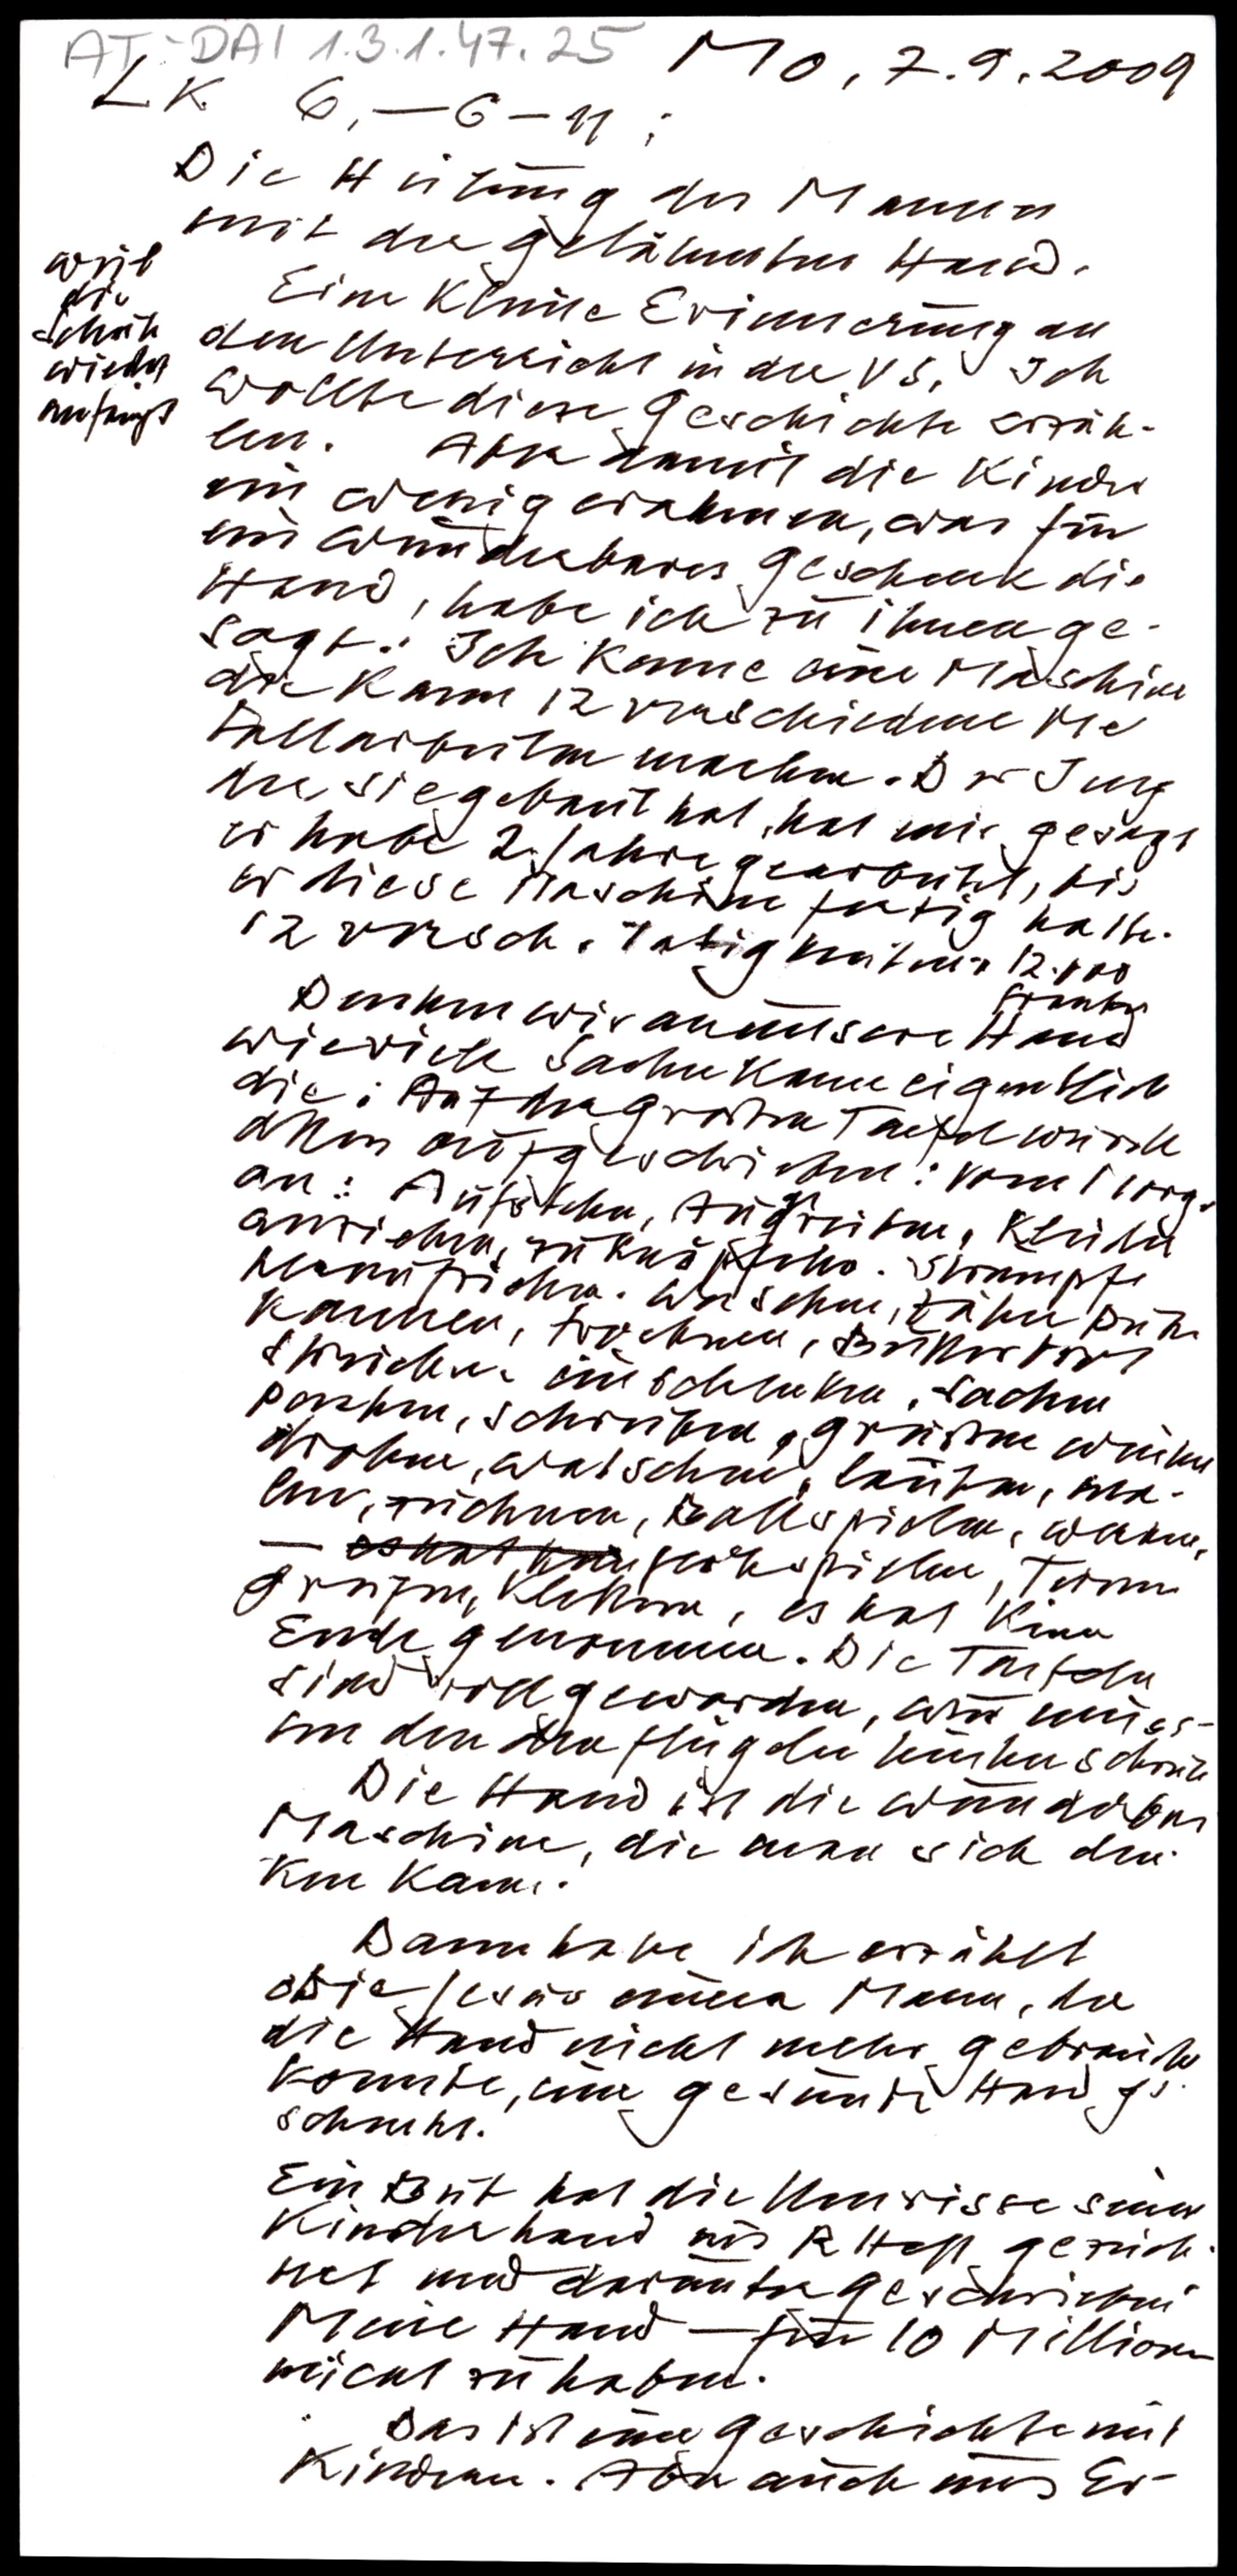 AT-DAI 1.3.1.47.25
Mo, 7.9.2009
LK 6,-6-11;
Die Heilung des Mannes
mit der gelähmten Hand.
weil
die
Schule
wieder
anfängt
Eine kleine Erinnerung an
den Unterricht in der VS. Ich
wollte diese Geschichte erzäh-
len. Aber damit die Kinder
ein wenig erahnen, was für
ein wunderbares Geschenk die
Hand, habe ich zu ihnen ge-
sagt: Ich kenne eine Maschine
die kann 12 verschiedene Me
tallarbeiten machen. Der Ing
der sie gebaut hat, hat mir gesagt
er habe 2 Jahre gearbeitet, bis
er diese Maschine fertig hatte.
12 versch. Tätigkeiten. 12.000
Denken wir an unsere Hand
wieviele Sachen kann eigentlich
die: Auf der großen Tafel wurde
alles aufgeschrieben: vom Morg.
an: Aufstehn, Kleider
anziehen, zuknöpfen. Strümpfe
hinaufziehen. Waschen, Zähne putzen
kämmen, trocknen, Butterbrot
streichen. einschenken, Sachen
packen, schreiben, grüßen winken
drohen, watschen, läuten, ma-
len, zeichnen, Ballspielen,
— es hat kein spielen, Turnen
greifen, klettern, es hat kein
Ende genommen. Die Tafeln
sind voll geworden, wir muss-
ten den Flügeln hinten schreiben
Die Hand ist die wunderbare
Maschine, die man sich den-
ken kann.
Dann habe ich erzählt
wie Jesus einem Mann, der
die Hand nicht mehr gebrauchen
konnte, eine gesunde Hand ge-
schenkt.
Ein Bub hat die Umrisse seiner
Kinderhand ins R Heft gezeich-
net und darunter geschrieben
Meine Hand — für 10 Millionen
nicht zu haben.
Das ist eine Geschichte mit
Kindern. Aber auch uns Er-